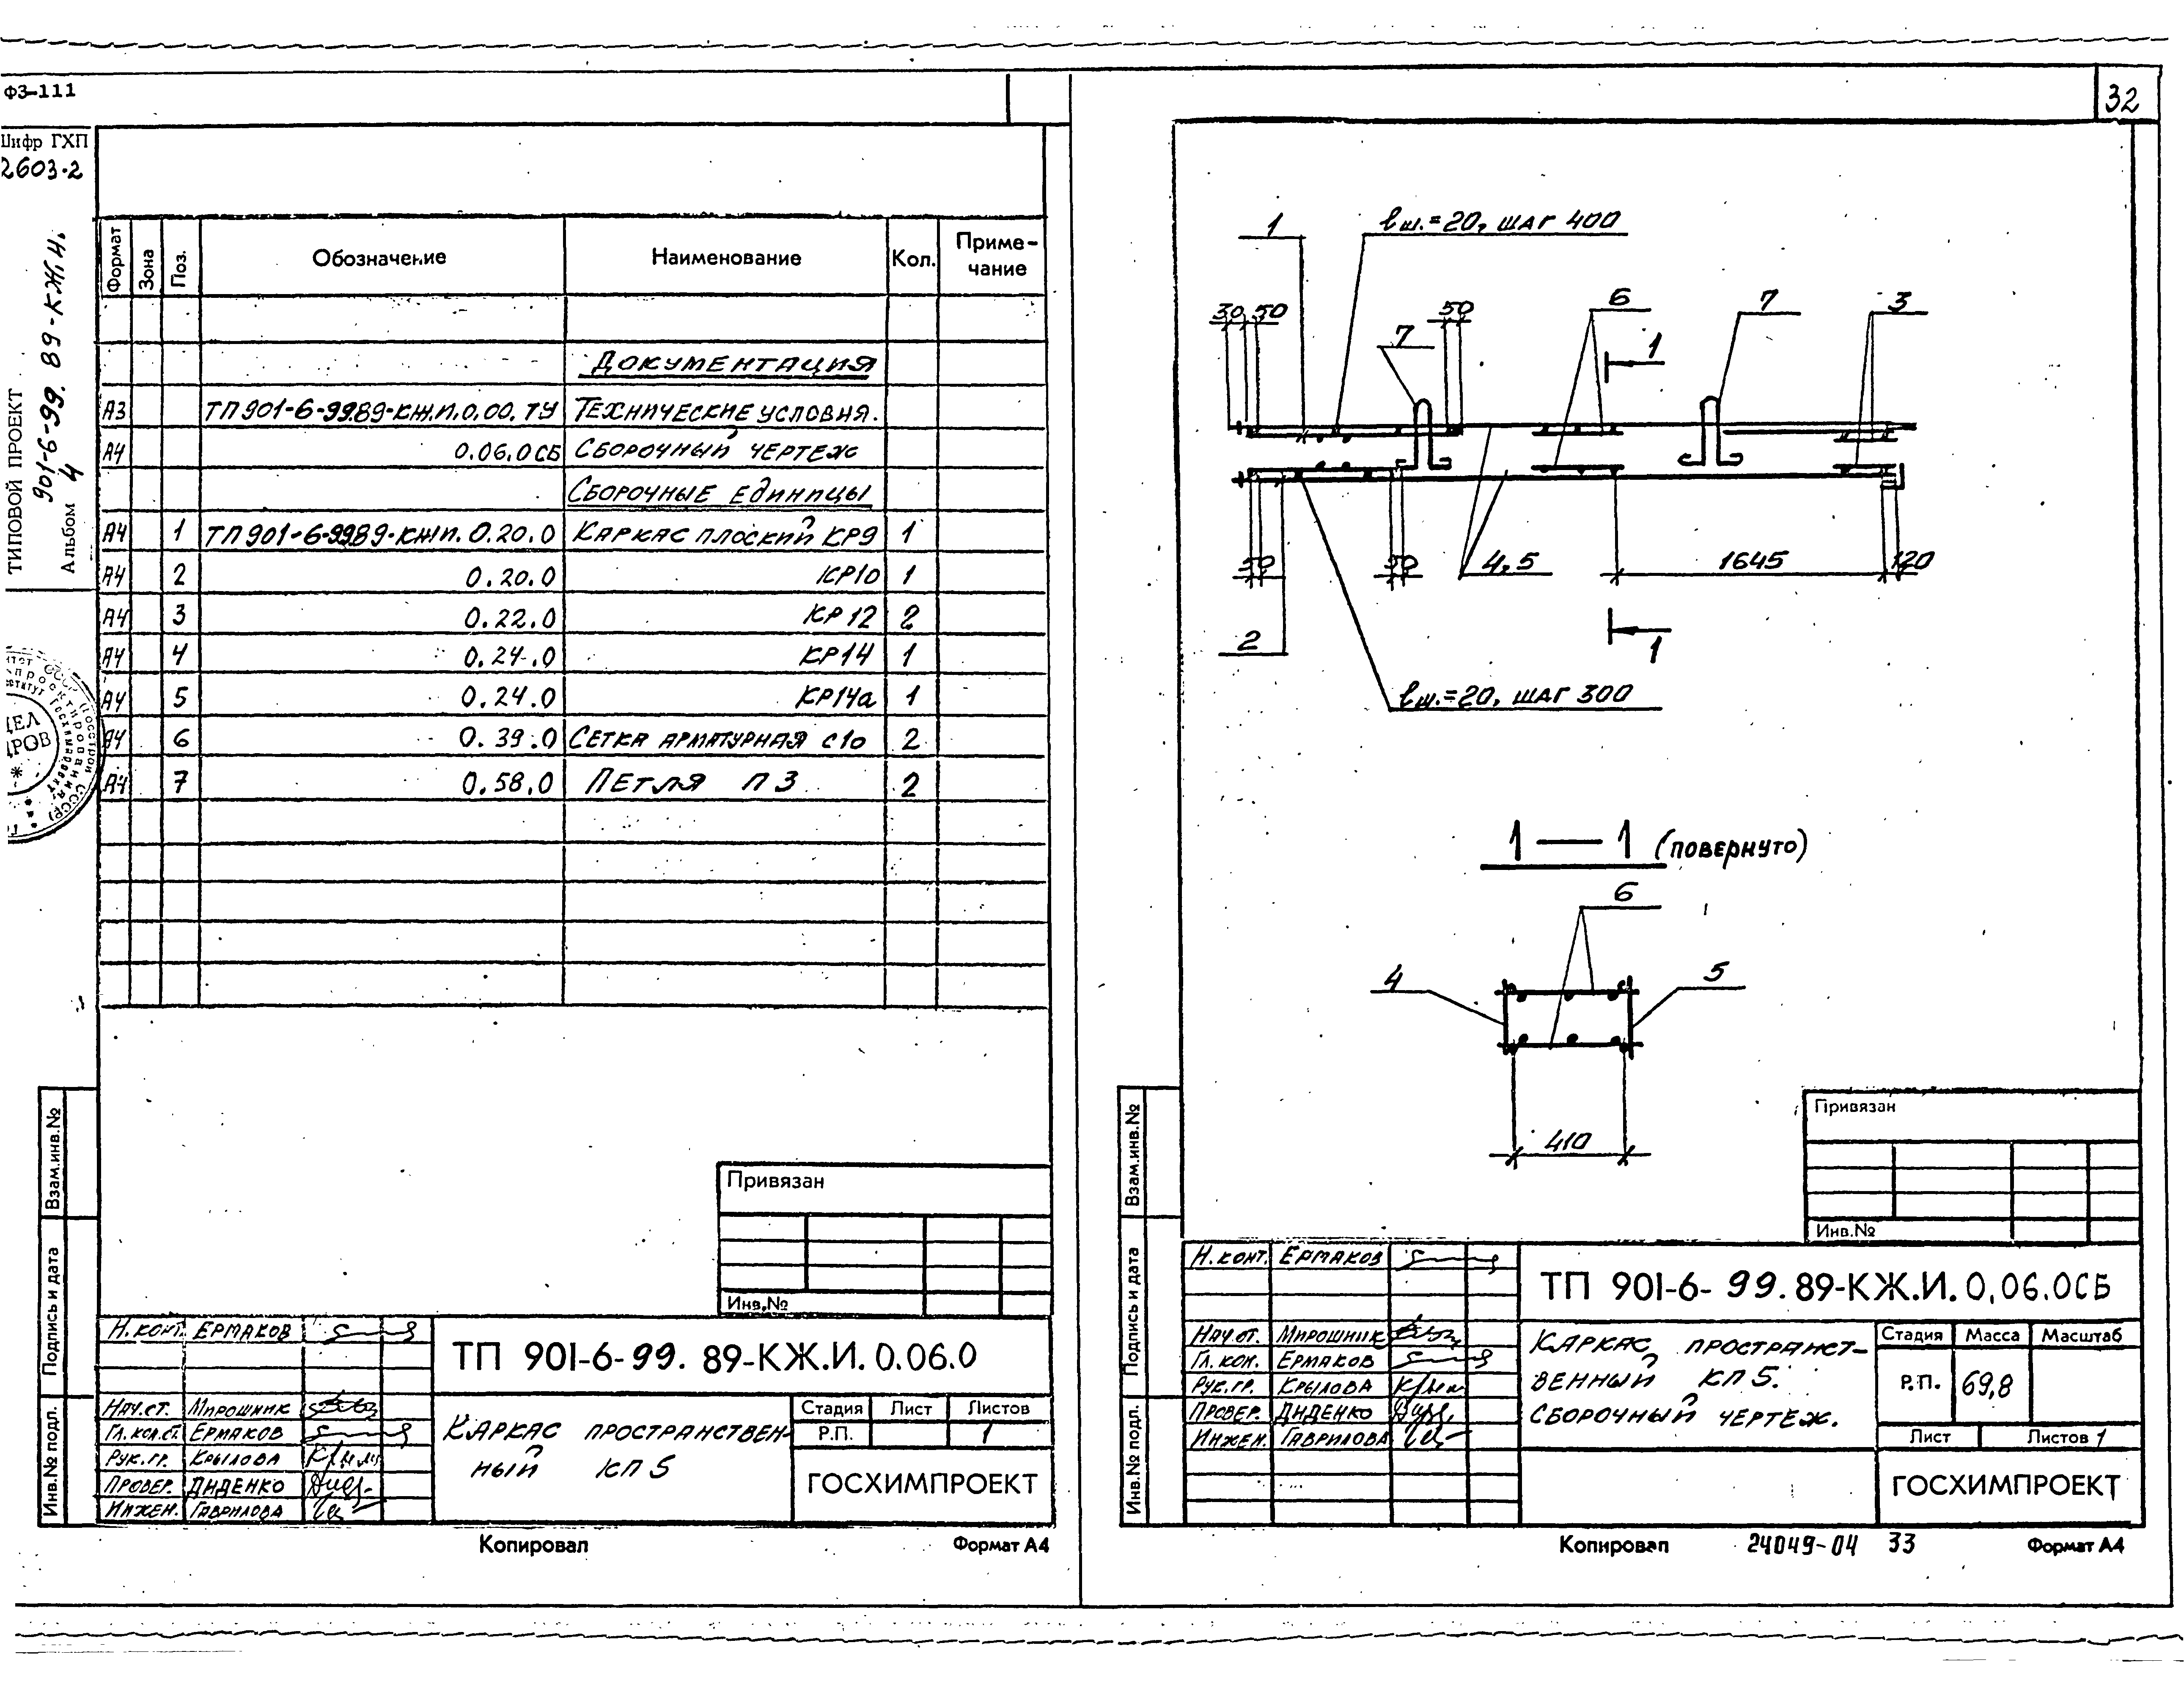 ФЗ-111
Шифр ГХП
2603-2
ТИПОВОЙ ПРОЕКТ
901-6-99. 89-КЖ.И.
Альбом 4
Формат Зона Поз. Обозначение Наименование Кол. Приме-
чание
Документация
А3 ТП901-6-99.89-КЖ.И.0.00.ТУ Технические условия.
А4 0.06.0СБ Сборочный чертеж
Сборочные единицы
А4 1 ТП901-6-99.89-КЖ.И.0.20.0 Каркас плоский КР9 1
А4 2 0.20.0 КР10 1
А4 3 0.22.0 КР12 2
А4 4 0.24.0 КР14 1
А4 5 0.24.0 КР14а 1
А4 6 0.39.0 Сетка арматурная С10 2
А4 7 0.58.0 Петля П3 2
Взам.инв.№
Подпись и дата
Инв.№ подл.
Привязан
Инв.№
Н.конт. Ермаков
Нач.ст. Мирошник
Гл.кон.ст. Ермаков
Рук.гр. Крылова
Провер. Диденко
Инжен. Гаврилова
ТП 901-6-99.89-КЖ.И.0.06.0
Каркас пространствен-
ный КП5
Стадия Лист Листов
Р.П. 1
ГОСХИМПРОЕКТ
Копировал Формат А4
32
1 lш.=20, шаг 400
30 50 50 6 7 3
7 1
50 50 4,5 1645 120
2 1
lш.=20, шаг 300
1—1 (повернуто)
6
4 5
410
Взам.инв.№
Подпись и дата
Инв.№ подл.
Привязан
Инв.№
Н.конт. Ермаков
Нач.от. Мирошник
Гл.кон. Ермаков
Рук.гр. Крылова
Провер. Диденко
Инжен. Гаврилова
ТП 901-6-99.89-КЖ.И.0.06.0СБ
Каркас пространст-
венный КП5.
Сборочный чертеж.
Стадия Масса Масштаб
Р.П. 69,8
Лист Листов 1
ГОСХИМПРОЕКТ
Копировал 24049-04 33 Формат А4